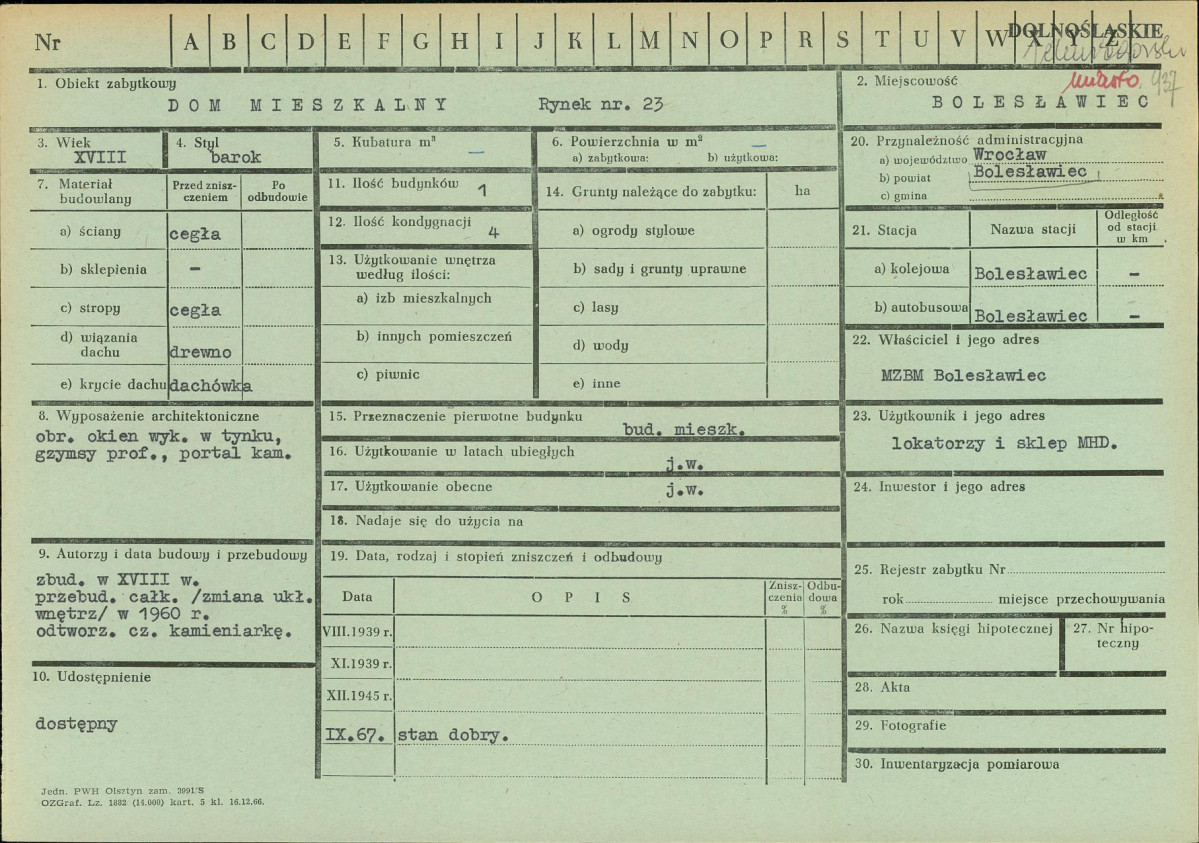 DOLNOŚLĄSKIE
Nr A B C D E F G H I J K L M N O P R S T U V W X Y Z
miasto 937
1. Obiekt zabytkowy
DOM MIESZKALNY Rynek nr. 23
2. Miejscowość
BOLESŁAWIEC
3. Wiek
XVIII
4. Styl
barok
5. Kubatura m³
—
6. Powierzchnia w m²
—
a) zabytkowa: b) użytkowa:
7. Materiał budowlany
Przed zniszczeniem
Po odbudowie
a) ściany cegła
b) sklepienia —
c) stropy cegła
d) wiązania dachu drewno
e) krycie dachu dachówka
8. Wyposażenie architektoniczne
obr. okien wyk. w tynku,
gzymsy prof., portal kam.
9. Autorzy i data budowy i przebudowy
zbud. w XVIII w.
przebud. całk. /zmiana ukł.
wnętrz/ w 1960 r.
odtworz. cz. kamieniarkę.
10. Udostępnienie
dostępny
11. Ilość budynków 1
12. Ilość kondygnacji 4
13. Użytkowanie wnętrza
według ilości:
a) izb mieszkalnych
b) innych pomieszczeń
c) piwnic
14. Grunty należące do zabytku: ha
a) ogrody stylowe
b) sady i grunty uprawne
c) lasy
d) wody
e) inne
15. Przeznaczenie pierwotne budynku
bud. mieszk.
16. Użytkowanie w latach ubiegłych
j.w.
17. Użytkowanie obecne j.w.
18. Nadaje się do użycia na
19. Data, rodzaj i stopień zniszczeń i odbudowy
Data OPIS Zniszczenia % Odbudowa %
VIII.1939 r.
XI.1939 r.
XII.1945 r.
IX.67. stan dobry.
20. Przynależność administracyjna
a) województwo Wrocław
b) powiat Bolesławiec
c) gmina
21. Stacja Nazwa stacji Odległość od stacji w km
a) kolejowa Bolesławiec —
b) autobusowa Bolesławiec —
22. Właściciel i jego adres
MZBM Bolesławiec
23. Użytkownik i jego adres
lokatorzy i sklep MHD.
24. Inwestor i jego adres
25. Rejestr zabytku Nr
rok miejsce przechowywania
26. Nazwa księgi hipotecznej
27. Nr hipoteczny
28. Akta
29. Fotografie
30. Inwentaryzacja pomiarowa
Jedn. PWH Olsztyn zam. 3991/S
OZGraf. Lz. 1882 (14.000) kart. 5 kl. 16.12.66.